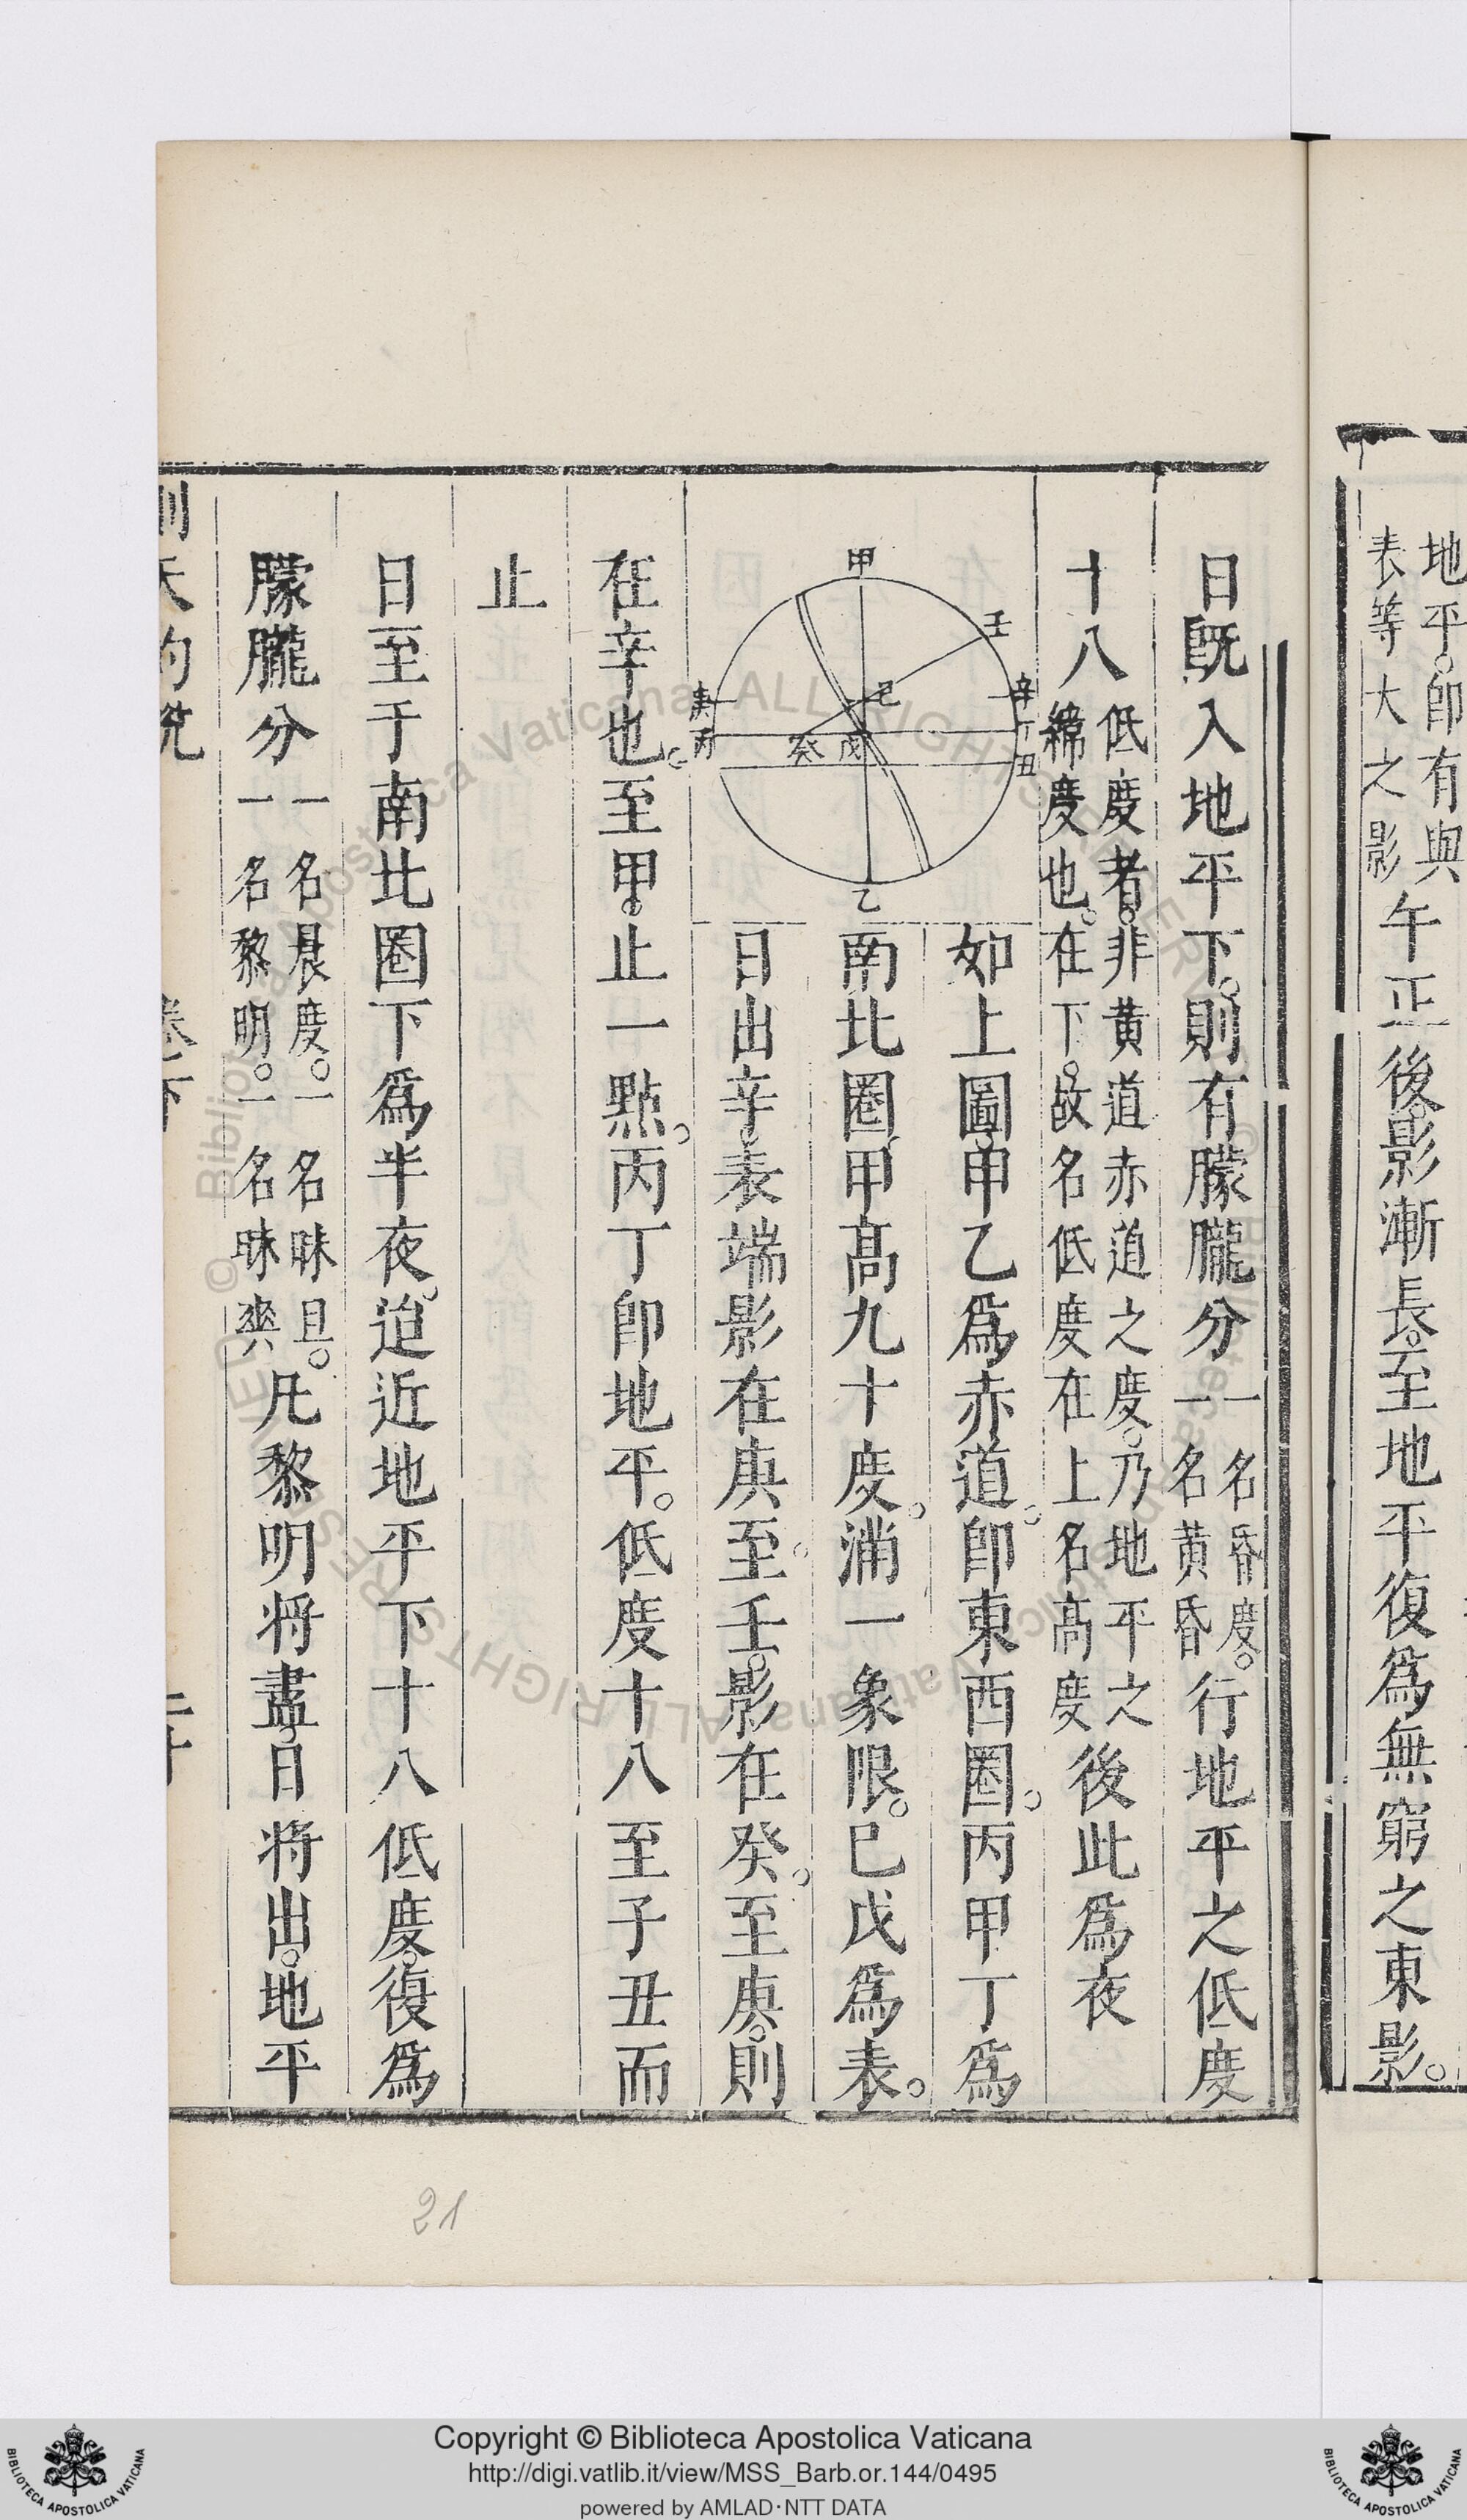 地平。即有與
表等大之影
午正後。影漸長。至地平復爲無窮之東影。
日既入地平下。則有朦朧分
一名昏度。
一名黄昏
行地平之低度
十八
低度者。非黄道赤道之度。乃地平之
緯度也。在下。故名低度在上名高度
後此爲夜
甲
壬
己
辛
丁
丑
庚
丙
癸
戊
乙
如上圖。甲乙爲赤道。卽東西圈。丙甲丁爲
南北圈。甲高九十度。滿一象限。己戊爲表。
日出辛。表端影在庚。至壬。影在癸。至庚。則
在辛也。至甲。止一點。丙丁卽地平。低度十八至子丑而
止
日至于南北圈下爲半夜。迨近地平下十八低度。復爲
朦朧分
一名晨度。一名昧旦。
一名黎明。一名昧爽
凡黎明將盡。日將出。地平
測天約說
卷下
二十
21
© Biblioteca Apostolica Vaticana ALL RIGHTS RESERVED
Copyright © Biblioteca Apostolica Vaticana
http://digi.vatlib.it/view/MSS_Barb.or.144/0495
powered by AMLAD·NTT DATA
BIBLIOTECA APOSTOLICA VATICANA
BIBLIOTECA APOSTOLICA VATICANA